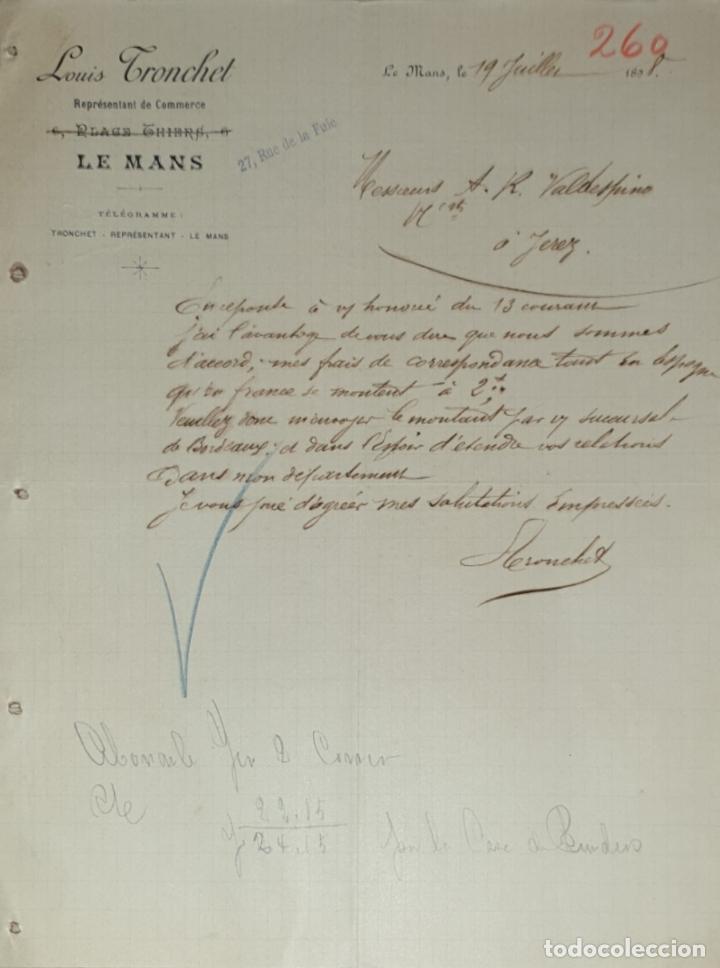 260
Louis Tronchet
Représentant de Commerce
6, PLACE THIERS, 6
LE MANS
27, Rue de la Fuie
TÉLÉGRAMME :
TRONCHET - REPRÉSENTANT - LE MANS
Le Mans, le 19 Juillet 1898.
Messieurs A. R. Valdespino
à Jerez.
En réponse à v/ honoré du 13 courant
j'ai l'avantage de vous dire que nous sommes
d'accord, mes frais de correspondance tout en Espagne
qu'en france se montent à 2
Veuillez donc m'envoyer le montant par v/ succursale
de Bordeaux et dans l'Espoir d'étendre vos relations
dans mon département
Je vous prie d'agréer mes salutations Empressées.
LTronchet
22.15
24.15
todocoleccion.net